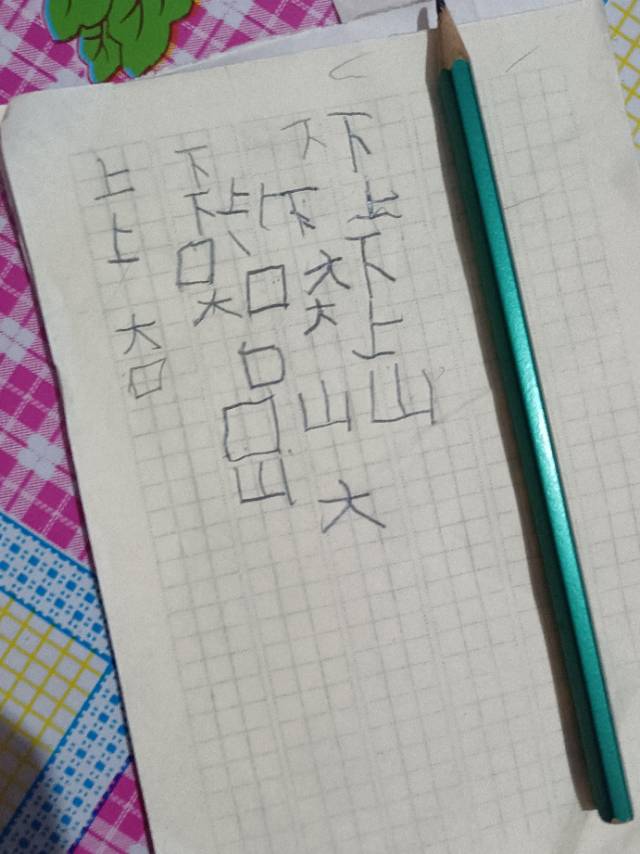 上 下 下 下
上 下 上 下 上
口 口 大 下
大 大 大 上
口 口 山 山
口
山 大